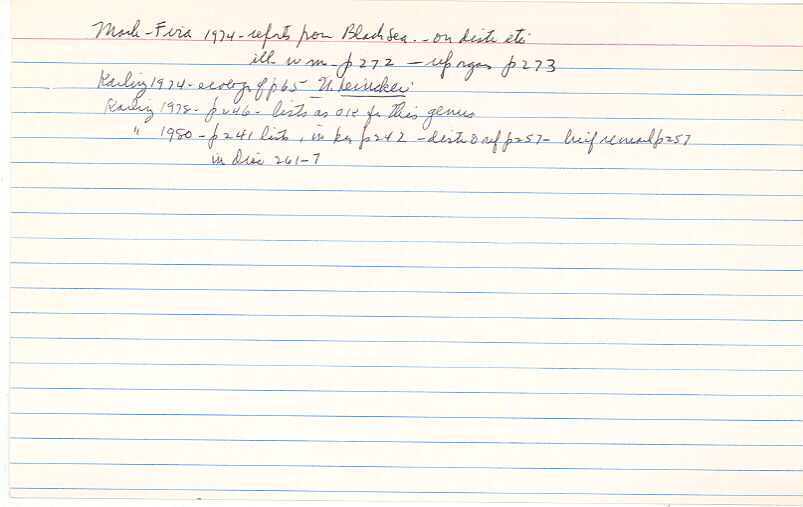 Mack-Fira 1974 - reprts from Black Sea - on distr etc
ill w m - p272 - reprorgs p273
Karling 1974 - ecology of p65 U. reincker
Karling 1978 - p246 - lists as OK for this genus
" 1980 - p241 lists, in key p242 - distr & ref p257 - brief remark p257
in Disc 261-7